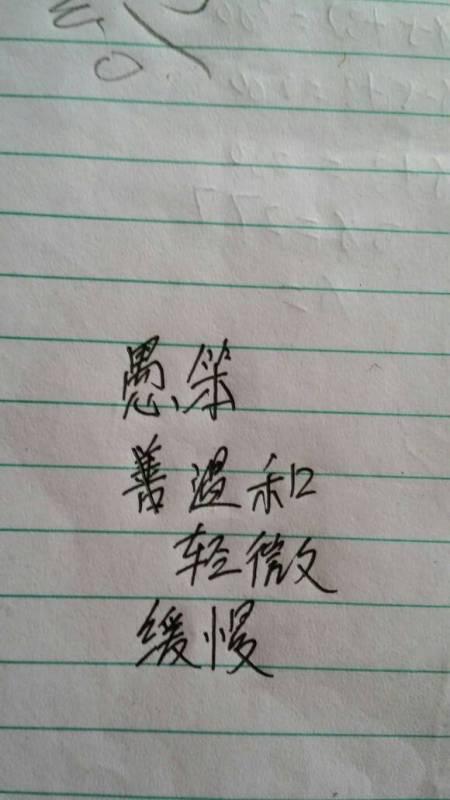 愚笨
善温和
轻微
缓慢